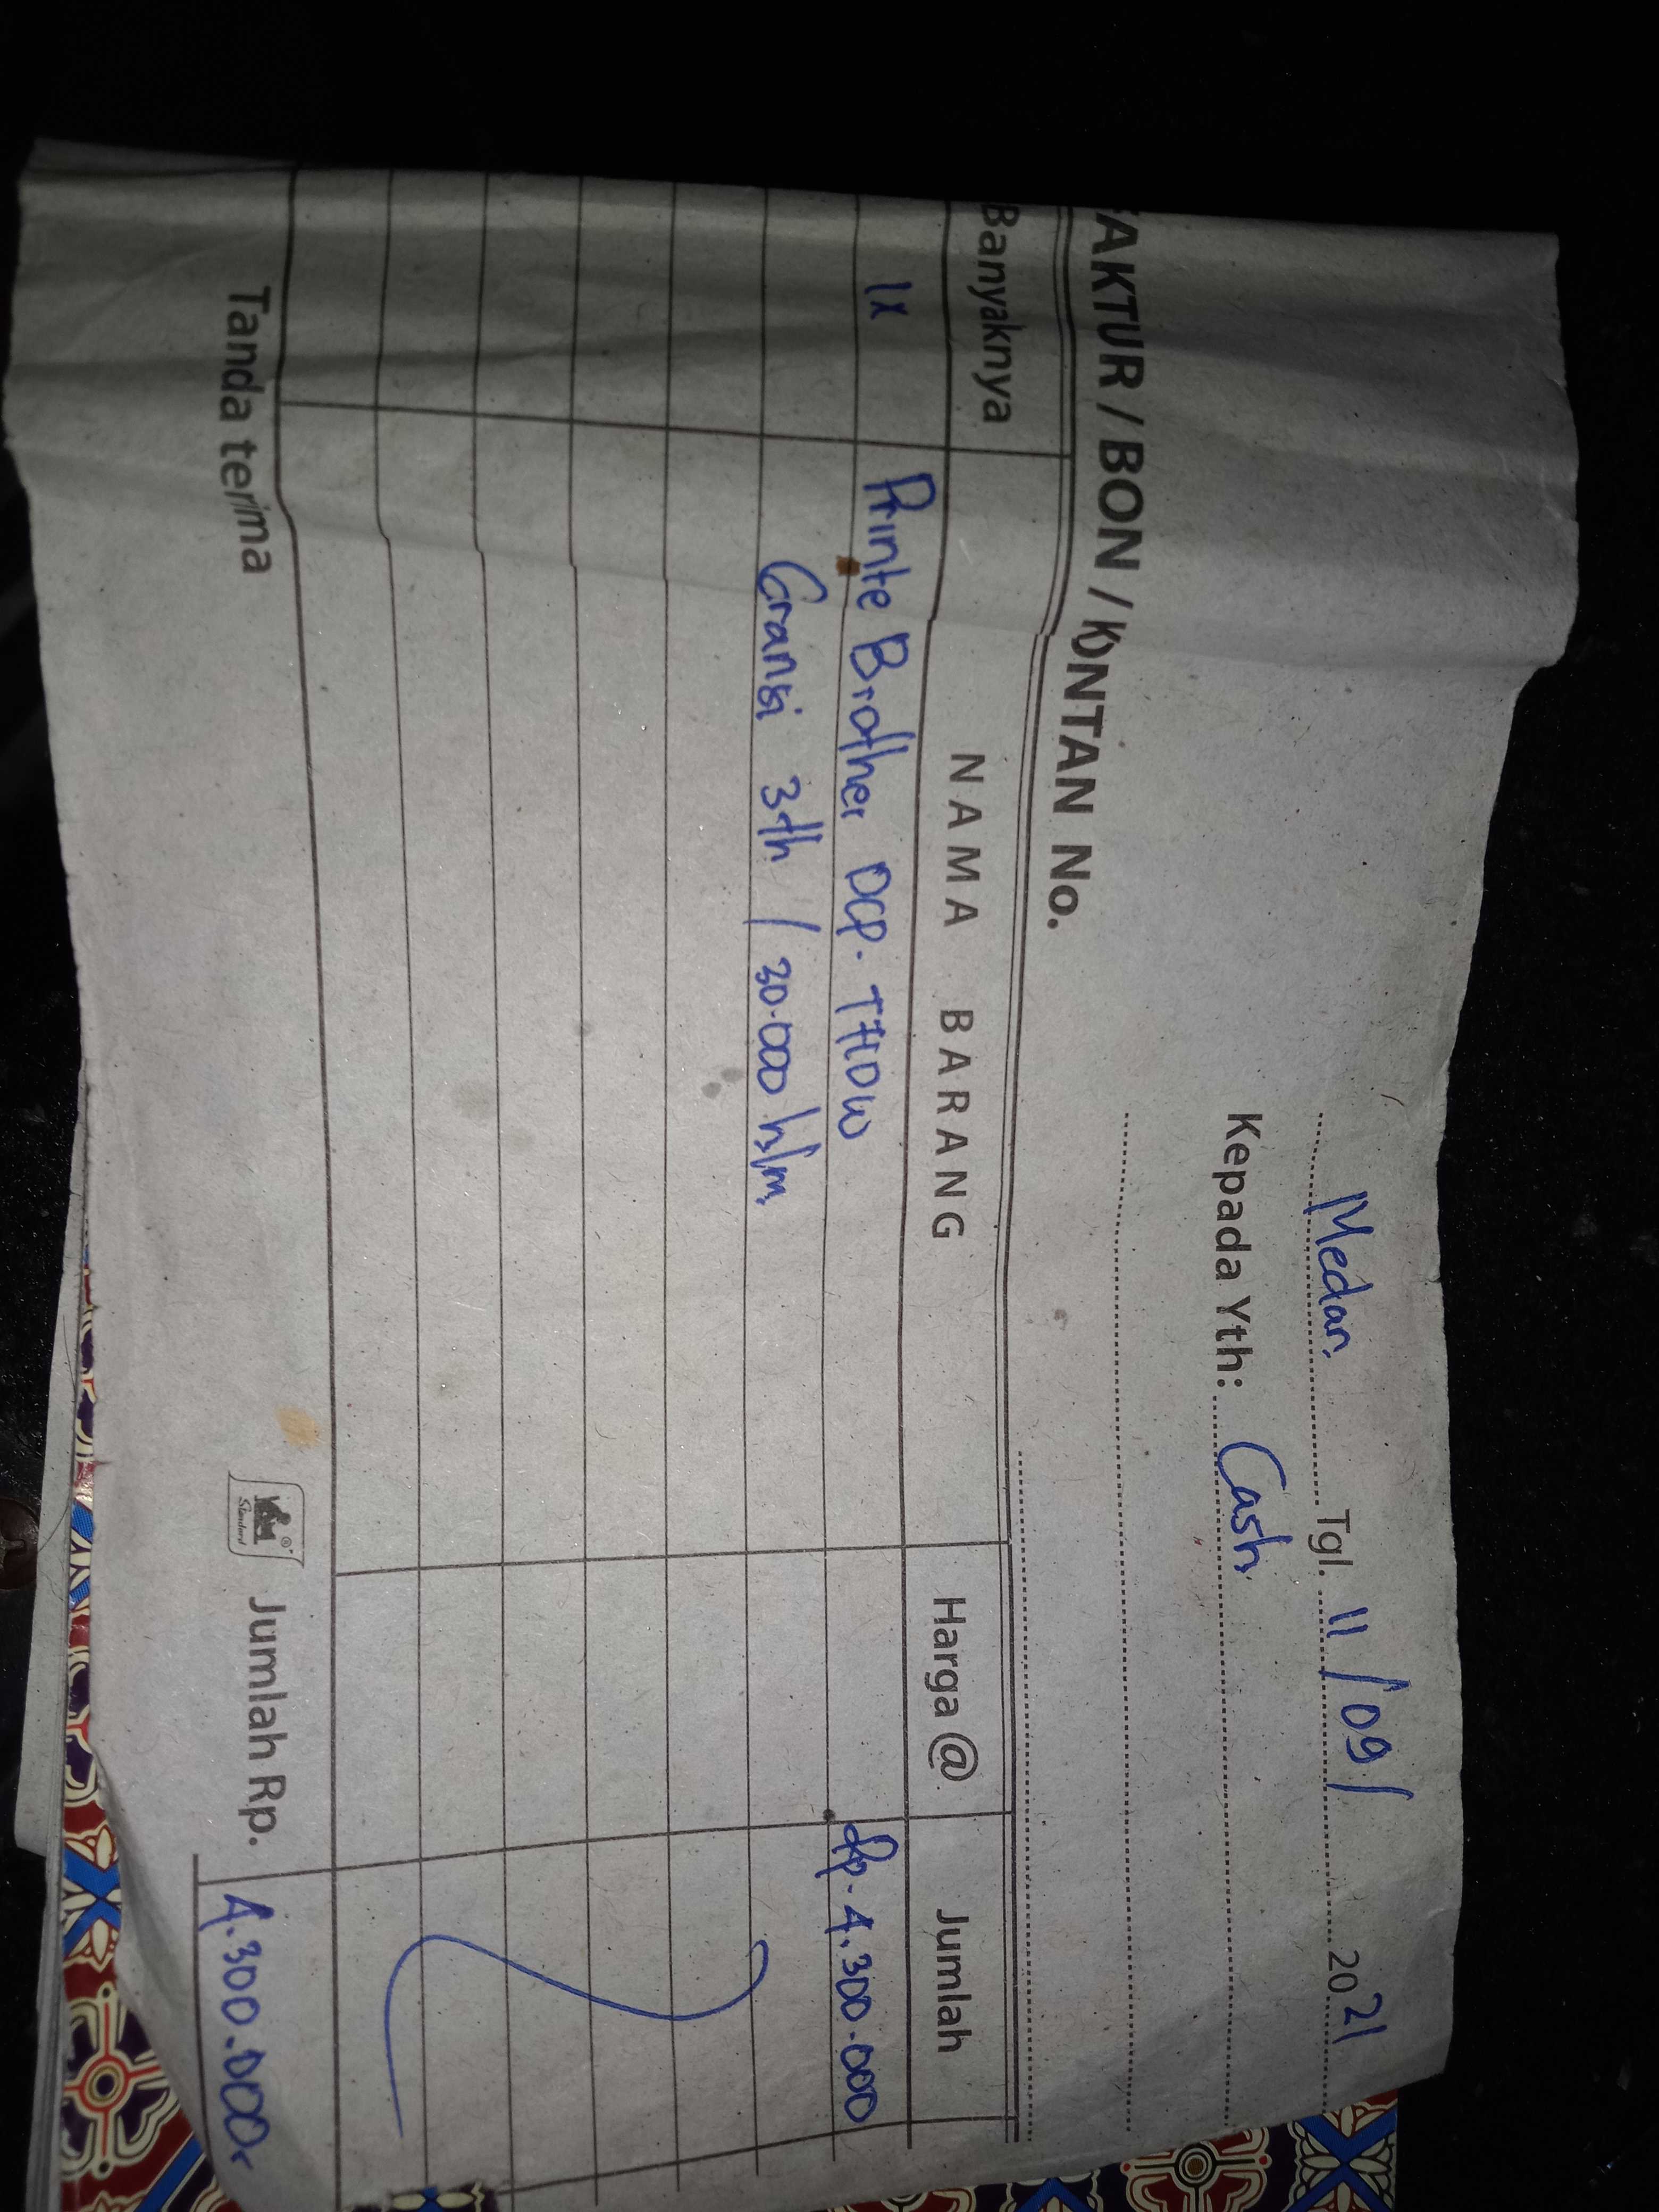 Medan Tgl. 11/09/ 2021
Kepada Yth: Cash
AKTUR / BON / KONTAN No.
Banyaknya NAMA BARANG Harga @ Jumlah
1x Printe Brother DCP. T710W Rp. 4.300.000
Gransi 3th / 30.000 h/m
Tanda terima Standard Jumlah Rp. 4.300.000